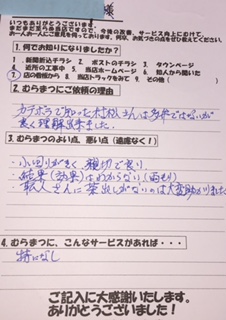 様
いつもありがとうございます。
今後の改善、サービス向上にむけて、
お一人お一人にご意見を伺っております。何卒、お気づきの点をぜひ教えてください。
1. 何でお知りになりましたか?
1. 新聞折込チラシ 2. ポストのチラシ 3. タウンページ
4. 近所の工事中 5. 当店ホームページ 6. 知人から聞いた
7. 店の看板から 8. 当店トラックをみて 9. その他(
2. むらまつにご依頼の理由
カテボラで知った村松さんは
良く理解出来ました。
3. むらまつのよい点、悪い点(遠慮なく!)
・小回りがきく 親切で良い
・結果(効果)はわからない(雨もり)
・職人さんに茶出しがないのは大変助かりました
4. むらまつに、こんなサービスがあれば・・・
特になし
ご記入に大感謝いたします。
ありがとうございました!